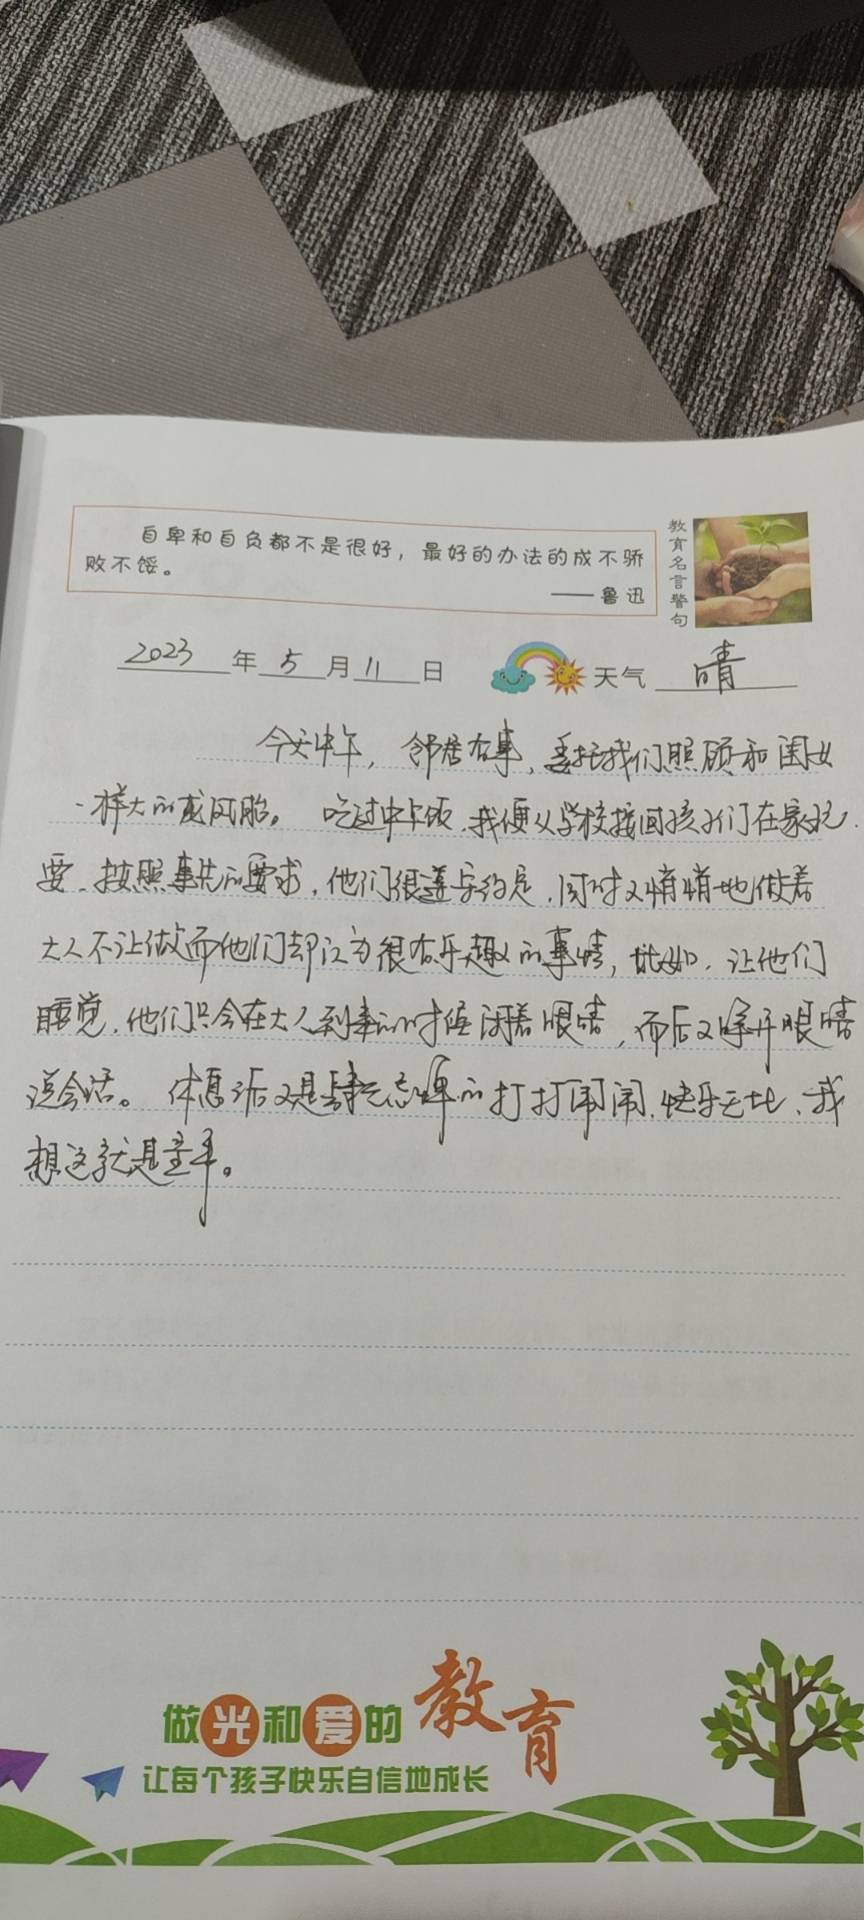 自卑和自负都不是很好，最好的办法的成不骄
败不馁。
——鲁迅
教育名言警句
2023年5月11日 天气 晴
今天中午，邻居有事，委托我们照顾和闺女
一样大的龙凤胎。吃过中午饭，我便从学校接回孩子们在家玩
耍。按照事先的要求，他们很遵守约定，同时又悄悄地做着
大人不让做而他们却认为很有乐趣的事情，比如，让他们
睡觉，他们只会在大人到来的时候闭着眼睛，而后又睁开眼睛
说会话。休息后又是肆无忌惮的打打闹闹，快乐无比，我
想这就是童年。
做光和爱的教育
让每个孩子快乐自信地成长